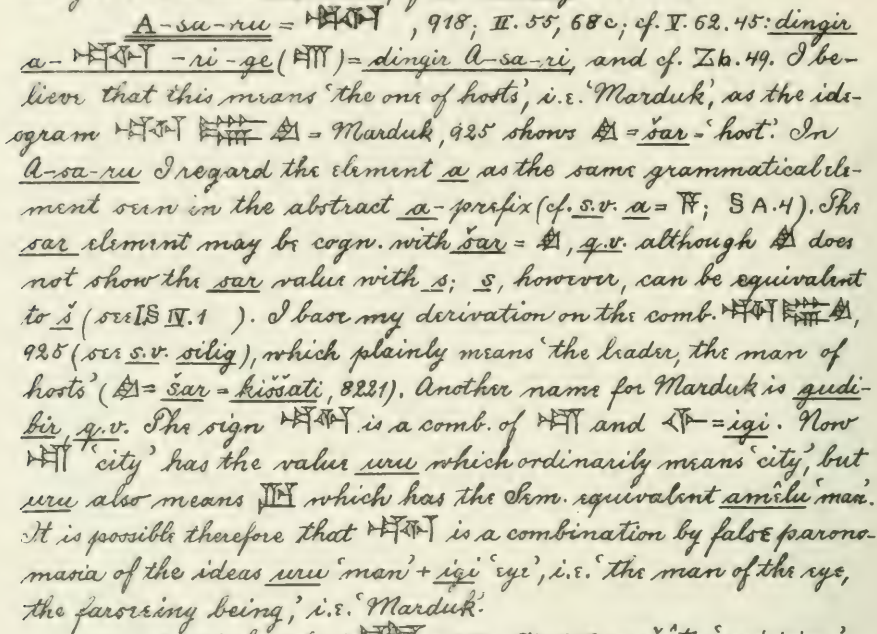 A-sa-ru = , 918; II. 55, 68c; cf. V. 62. 45: dingir
a- -ri-ge ( ) = dingir A-sa-ri, and cf. Zb. 49. I be-
lieve that this means ‘the one of hosts’, i.e. ‘Marduk’, as the ide-
ogram = Marduk, 925 shows = šar = ‘host’. In
A-sa-ru I regard the element a as the same grammatical ele-
ment seen in the abstract a-prefix (cf. s.v. a = 𒀀; § A. 4). The
sar element may be cogn. with šar = , q.v. although does
not show the sar value with s; s, however, can be equivalent
to š (see § IV. 1 ). I base my derivation on the comb. ,
925 (see s.v. silig), which plainly means ‘the leader, the man of
hosts’ ( = šar = kiššati, 8221). Another name for Marduk is gudi-
bir, q.v. The sign is a comb. of and = igi. Now
‘city’ has the value uru which ordinarily means ‘city’, but
uru also means which has the Sem. equivalent amêlu ‘man’.
It is possible therefore that is a combination by false parono-
masia of the ideas uru ‘man’ + igi ‘eye’, i.e. ‘the man of the eye,
the farseeing being,’ i.e. ‘Marduk’.